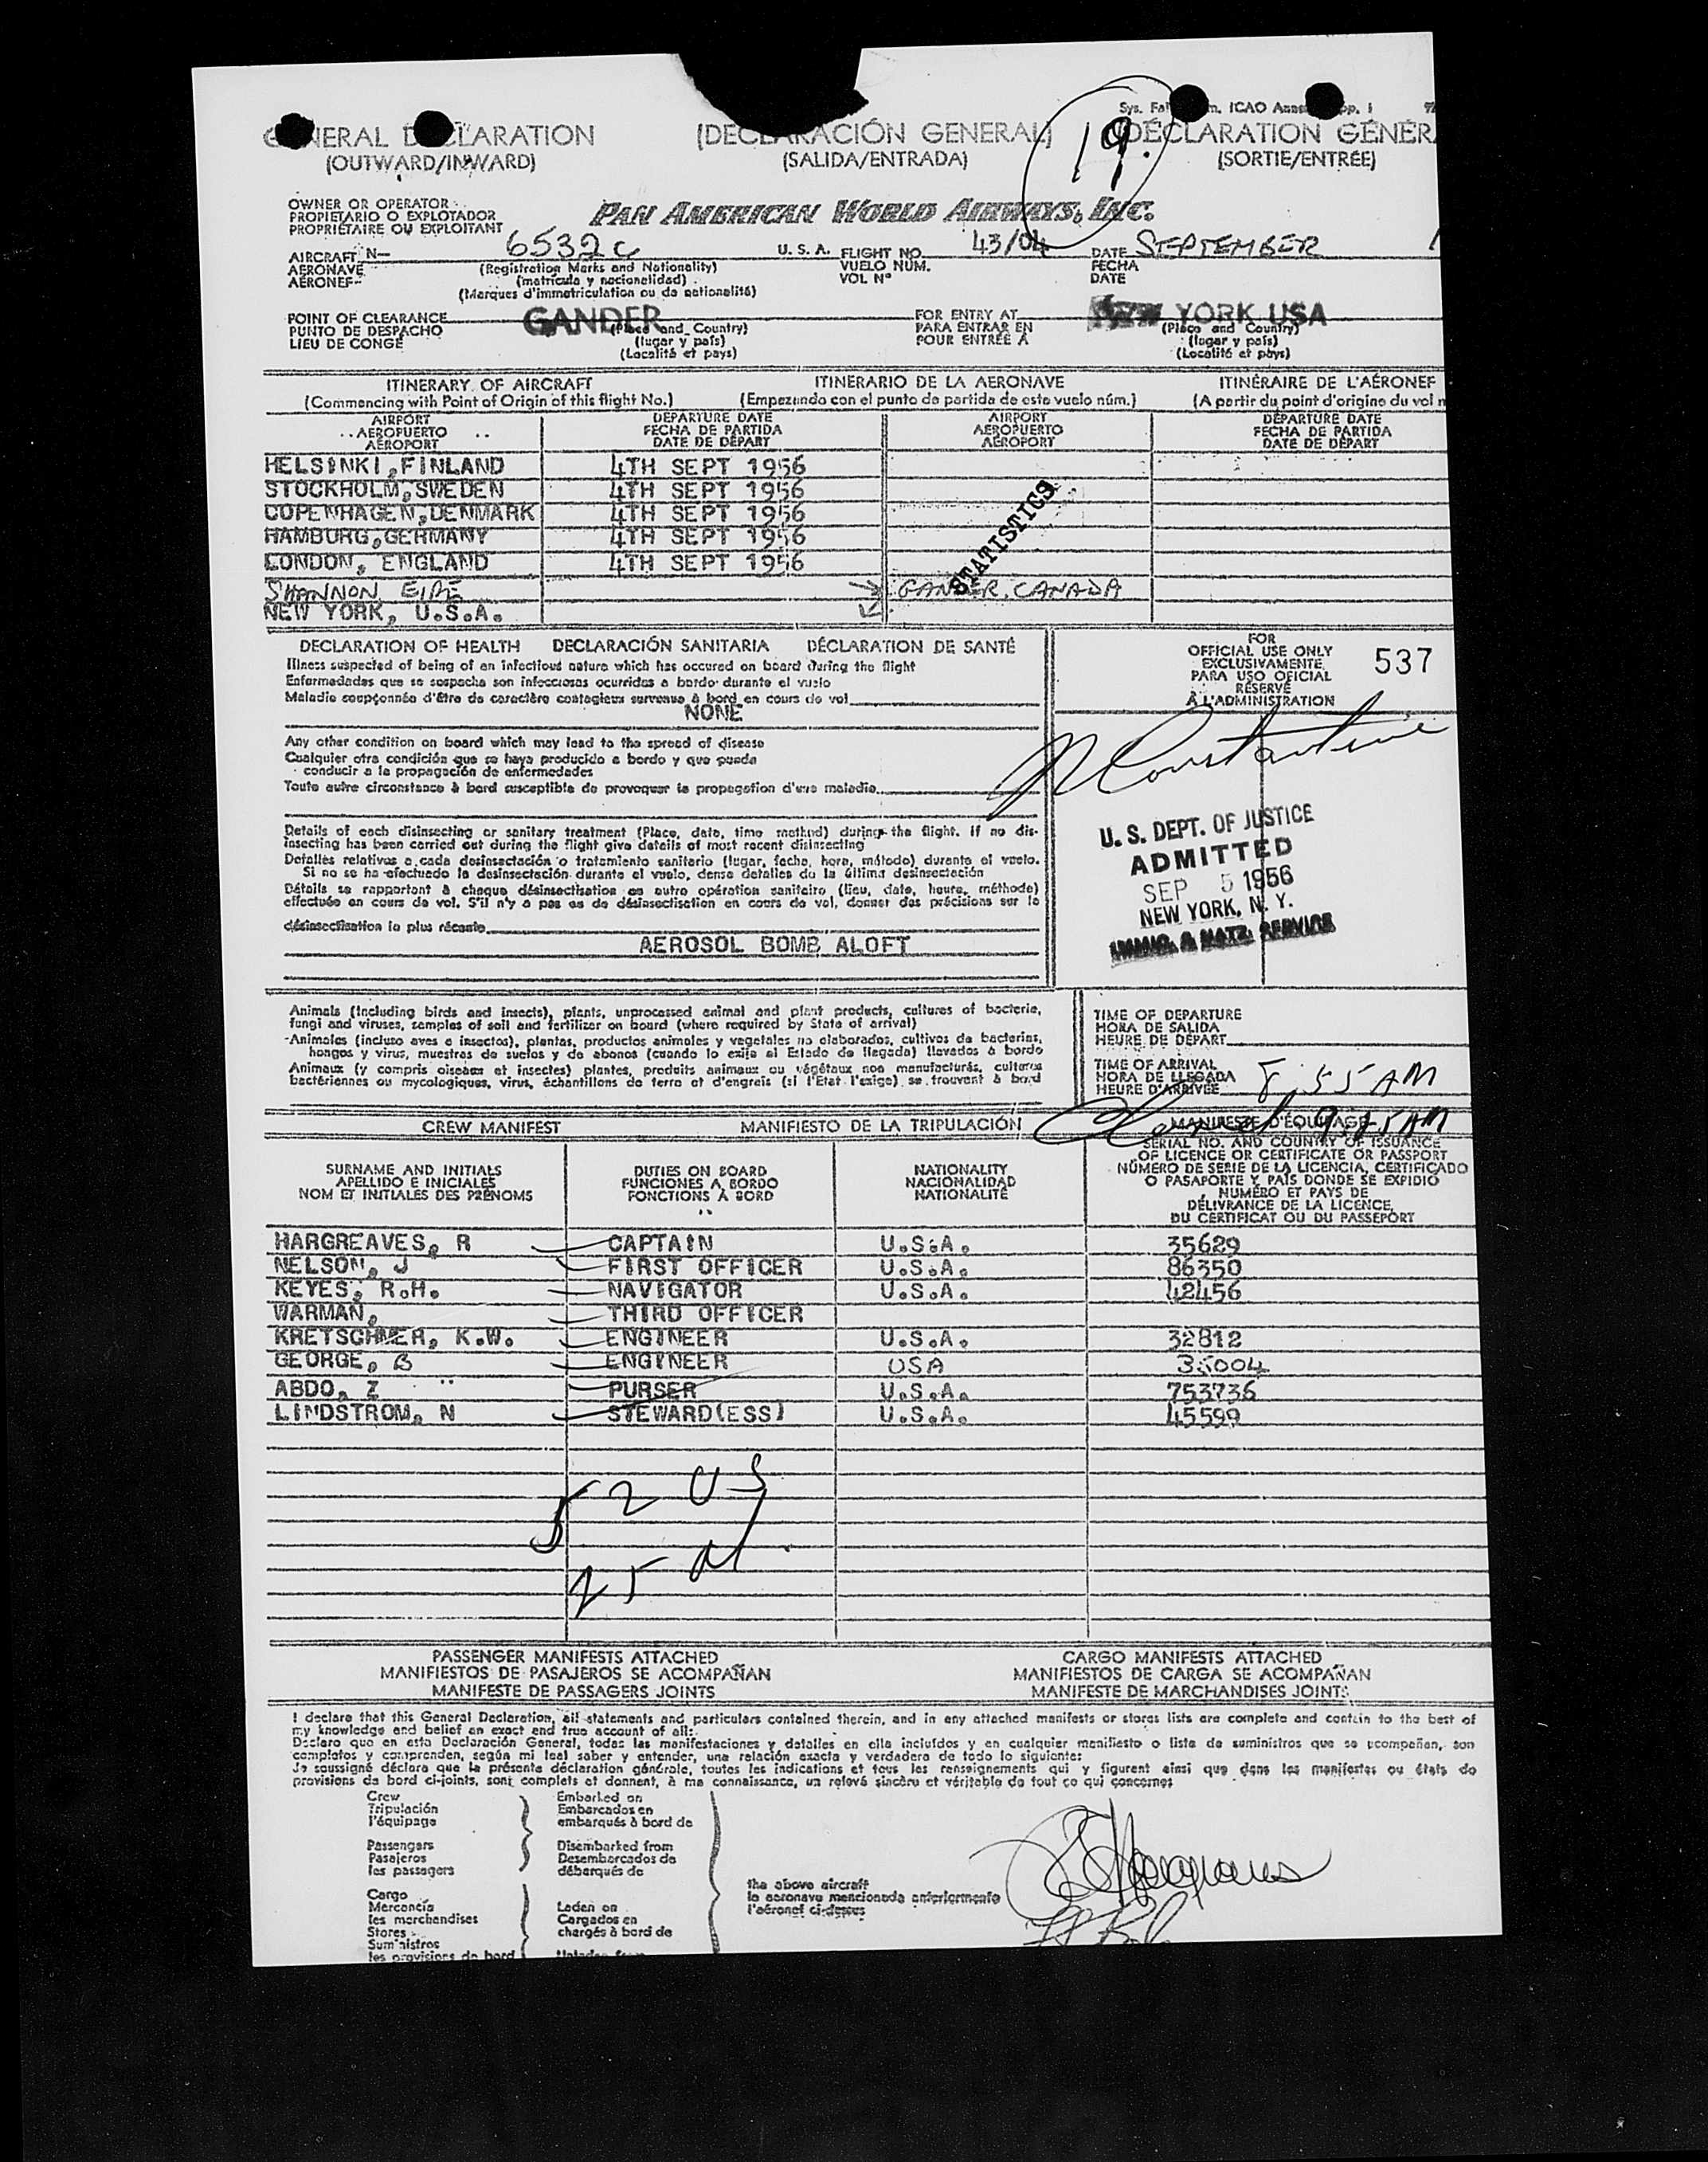 Sys. m. ICAO op. I
19.
NERAL D LARATION (DECLARACIÓN GENERAL) (DÉCLARATION GÉNÉR
(OUTWARD/INWARD) (SALIDA/ENTRADA) (SORTIE/ENTRÉE)
OWNER OR OPERATOR
PROPIETARIO O EXPLOTADOR
PROPRIÉTAIRE OU EXPLOITANT
PAN AMERICAN WORLD AIRWAYS, INC.
AIRCRAFT N— 6532C U. S. A. FLIGHT NO. 43/04 DATE SEPTEMBER
AERONAVE (Registration Marks and Nationality) VUELO NÚM. FECHA
AÉRONEF (matrícula y nacionalidad) VOL Nº DATE
(Marques d'immatriculation ou de nationalité)
POINT OF CLEARANCE GANDER FOR ENTRY AT NEW YORK USA
PUNTO DE DESPACHO (Place and Country) PARA ENTRAR EN (Place and Country)
LIEU DE CONGÉ (lugar y país) POUR ENTRÉE À (lugar y país)
(Localité et pays) (Localité et pays)
ITINERARY OF AIRCRAFT ITINERARIO DE LA AERONAVE ITINÉRAIRE DE L'AÉRONEF
(Commencing with Point of Origin of this flight No.) (Empezando con el punto de partida de este vuelo núm.) (A partir du point d'origine du vol n
AIRPORT DEPARTURE DATE AIRPORT DEPARTURE DATE
AEROPUERTO FECHA DE PARTIDA AEROPUERTO FECHA DE PARTIDA
AÉROPORT DATE DE DÉPART AÉROPORT DATE DE DÉPART
HELSINKI, FINLAND 4TH SEPT 1956
STOCKHOLM, SWEDEN 4TH SEPT 1956
COPENHAGEN, DENMARK 4TH SEPT 1956
HAMBURG, GERMANY 4TH SEPT 1956
LONDON, ENGLAND 4TH SEPT 1956
STATISTICS
SHANNON EIRE GANDER, CANADA
NEW YORK, U.S.A.
DECLARATION OF HEALTH DECLARACIÓN SANITARIA DÉCLARATION DE SANTÉ
Illness suspected of being of an infectious nature which has occured on board during the flight
Enfermedades que se sospecha son infecciosas ocurridas a bordo durante el vuelo
Maladie soupçonnée d'être de caractère contagieux survenue à bord en cours de vol
NONE
FOR
OFFICIAL USE ONLY
EXCLUSIVAMENTE
PARA USO OFICIAL
RÉSERVÉ
À L'ADMINISTRATION
537
Any other condition on board which may lead to the spread of disease
Cualquier otra condición que se haya producido a bordo y que pueda
conducir a la propagación de enfermedades
Toute autre circonstance à bord susceptible de provoquer la propagation d'une maladie
N Constantine
Details of each disinsecting or sanitary treatment (Place, date, time method) during the flight. If no dis-
insecting has been carried out during the flight give details of most recent disinsecting
Detalles relativos a cada desinsectación o tratamiento sanitario (lugar, fecha, hora, método) durante el vuelo.
Si no se ha efectuado la desinsectación durante el vuelo, dense detalles de la última desinsectación
Détails se rapportant à chaque désinsectisation ou autre opération sanitaire (lieu, date, heure, méthode)
effectuée en cours de vol. S'il n'y a pas eu de désinsectisation en cours de vol, donner des précisions sur la
désinsectisation la plus récente
AEROSOL BOMB ALOFT
U. S. DEPT. OF JUSTICE
ADMITTED
SEP 5 1956
NEW YORK, N. Y.
IMMIG. & NATZ. SERVICE
Animals (Including birds and insects), plants, unprocessed animal and plant products, cultures of bacteria,
fungi and viruses, samples of soil and fertilizer on board (where required by State of arrival)
Animales (incluso aves e insectos), plantas, productos animales y vegetales no elaborados, cultivos de bacterias,
hongos y virus, muestras de suelos y de abonos (cuando lo exija el Estado de llegada) llevados à bordo
Animaux (y compris oiseaux et insectes) plantes, produits animaux ou végétaux non manufacturés, cultures
bactériennes ou mycologiques, virus, échantillons de terre et d'engrais (si l'Etat l'exige) se trouvant à bord
TIME OF DEPARTURE
HORA DE SALIDA
HEURE DE DÉPART
TIME OF ARRIVAL
HORA DE LLEGADA
HEURE D'ARRIVÉE 8:55 AM
CREW MANIFEST MANIFIESTO DE LA TRIPULACIÓN MANIFESTE D'ÉQUIPAGE
SURNAME AND INITIALS
APELLIDO E INICIALES
NOM ET INITIALES DES PRÉNOMS
DUTIES ON BOARD
FUNCIONES A BORDO
FONCTIONS À BORD
NATIONALITY
NACIONALIDAD
NATIONALITÉ
SERIAL NO. AND COUNTRY OF ISSUANCE
OF LICENCE OR CERTIFICATE OR PASSPORT
NÚMERO DE SERIE DE LA LICENCIA, CERTIFICADO
O PASAPORTE Y PAÍS DONDE SE EXPIDIÓ
NUMÉRO ET PAYS DE
DÉLIVRANCE DE LA LICENCE,
DU CERTIFICAT OU DU PASSEPORT
HARGREAVES, R CAPTAIN U.S.A. 35629
NELSON, J FIRST OFFICER U.S.A. 86350
KEYES, R.H. NAVIGATOR U.S.A. 42456
WARMAN, THIRD OFFICER
KRETSCHMER, K.W. ENGINEER U.S.A. 32812
GEORGE, B ENGINEER USA
ABDO, Z PURSER U.S.A. 753736
LINDSTROM, N STEWARD(ESS) U.S.A. 45599
52 US
25 Al
PASSENGER MANIFESTS ATTACHED CARGO MANIFESTS ATTACHED
MANIFIESTOS DE PASAJEROS SE ACOMPAÑAN MANIFIESTOS DE CARGA SE ACOMPAÑAN
MANIFESTE DE PASSAGERS JOINTS MANIFESTE DE MARCHANDISES JOINTS
I declare that this General Declaration, all statements and particulars contained therein, and in any attached manifests or stores lists are complete and contain to the best of
my knowledge and belief an exact and true account of all:
Declaro que en esta Declaración General, todas las manifestaciones y detalles en ella incluídos y en cualquier manifiesto o lista de suministros que se acompañan, son
completos y comprenden, según mi leal saber y entender, una relación exacta y verdadera de todo lo siguiente:
Je soussigné déclare que la présente déclaration générale, toutes les indications et tous les renseignements qui y figurent ainsi que dans les manifestes ou états de
provisions de bord ci-joints, sont complets et donnent, à ma connaissance, un relevé sincère et véritable de tout ce qui concerne:
Crew Embarked on
Tripulación Embarcados en
l'équipage embarqués à bord de
Passengers Disembarked from
Pasajeros Desembarcados de
les passagers débarqués de
the above aircraft
la aeronave mencionada anteriormente
l'aéronef ci-dessus
Cargo
Mercancía Laden on
les marchandises Cargados en
Stores chargés à bord de
Suministros
les provisions de bord